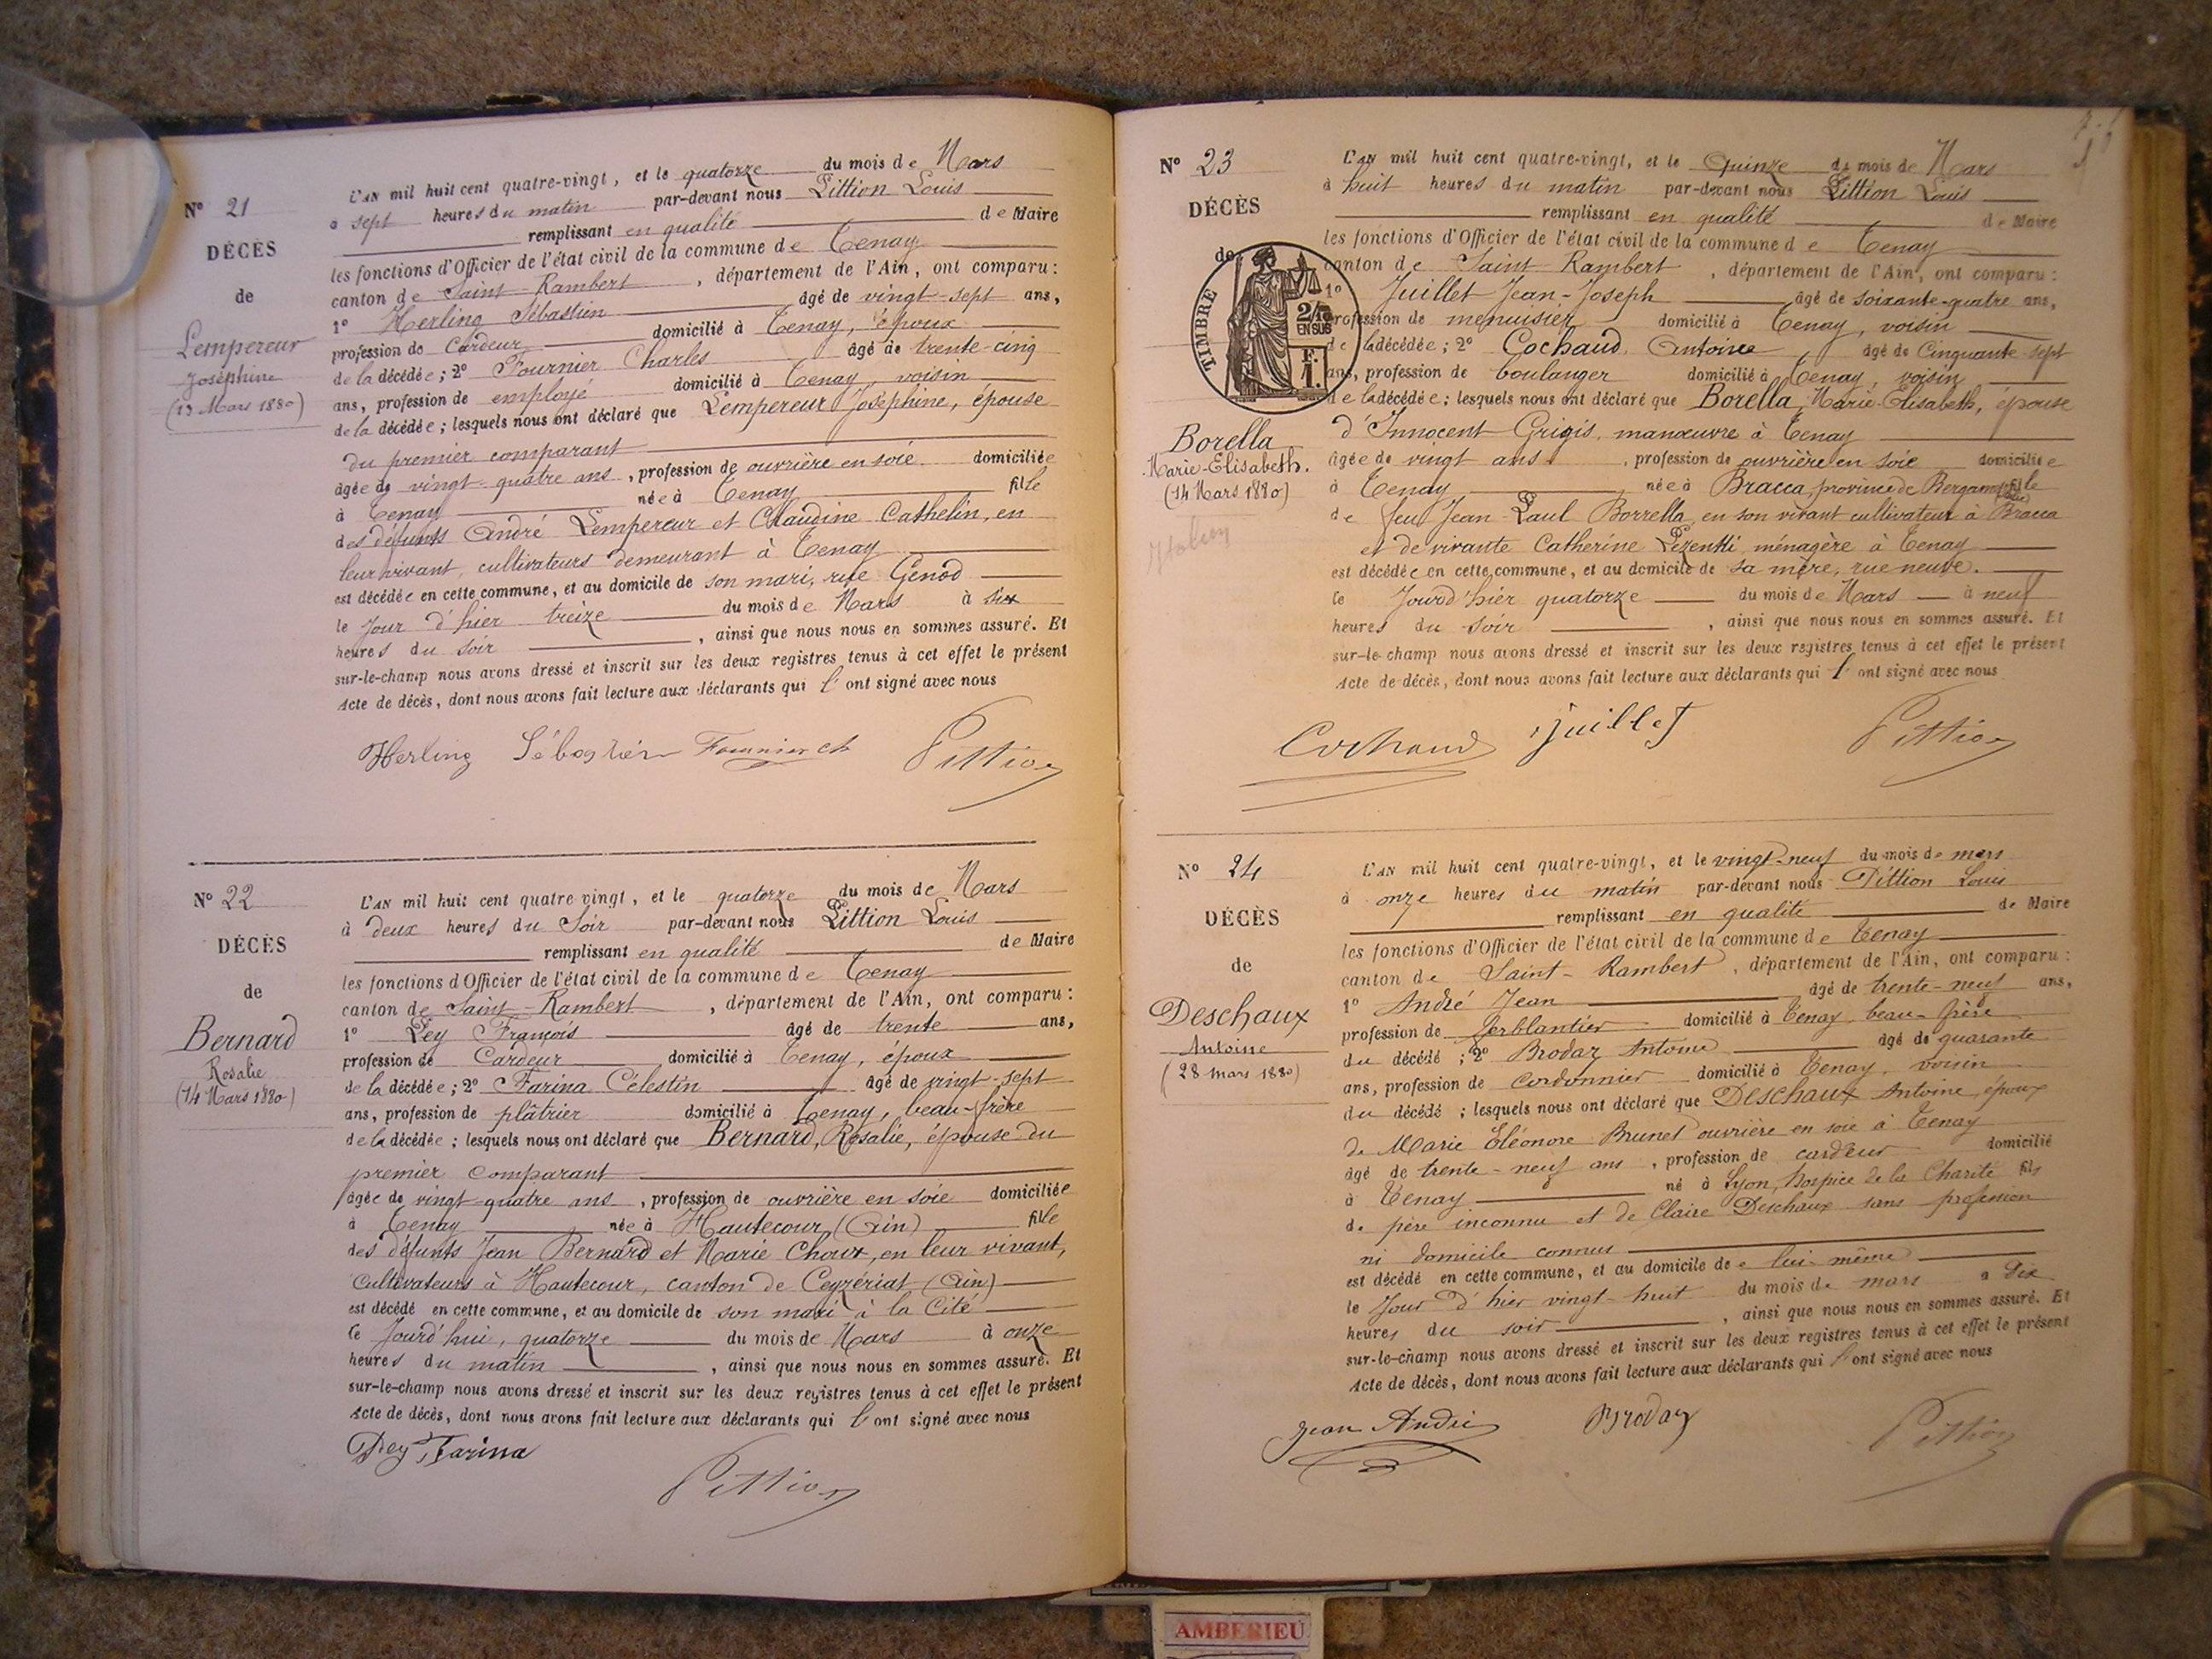 N° 21
DÉCÈS
de
Lempereur
Joséphine
(13 Mars 1880)
L'AN mil huit cent quatre-vingt, et le quatorze du mois de Mars
à sept heures du matin par-devant nous Pittion Louis
remplissant en qualité de Maire
les fonctions d'Officier de l'état civil de la commune de Tenay
canton de Saint-Rambert, département de l'Ain, ont comparu :
1° Herling Sébastien âgé de vingt-sept ans,
profession de Cardeur domicilié à Tenay, époux
de la décédée ; 2° Fournier Charles âgé de trente-cinq
ans, profession de employé domicilié à Tenay, voisin
de la décédée ; lesquels nous ont déclaré que Lempereur Joséphine, épouse
du premier comparant
âgée de vingt-quatre ans, profession de ouvrière en soie domiciliée
à Tenay née à Tenay fille
des défunts André Lempereur et Claudine Cathelin, en
leur vivant, cultivateurs demeurant à Tenay
est décédée en cette commune, et au domicile de son mari, rue Genod
le jour d'hier treize du mois de Mars à six
heures du soir, ainsi que nous nous en sommes assuré. Et
sur-le-champ nous avons dressé et inscrit sur les deux registres tenus à cet effet le présent
Acte de décès, dont nous avons fait lecture aux déclarants qui l'ont signé avec nous
Herling Sébastien Fournier Ch Pittion
N° 22
DÉCÈS
de
Bernard
Rosalie
(14 Mars 1880)
L'AN mil huit cent quatre vingt, et le quatorze du mois de Mars
à deux heures du Soir par-devant nous Pittion Louis
remplissant en qualité de Maire
les fonctions d'Officier de l'état civil de la commune de Tenay
canton de Saint-Rambert, département de l'Ain, ont comparu :
1° Pey François âgé de trente ans,
profession de Cardeur domicilié à Tenay, époux
de la décédée ; 2° Farina Célestin âgé de vingt-sept
ans, profession de plâtrier domicilié à Tenay, beau-frère
de la décédée ; lesquels nous ont déclaré que Bernard, Rosalie, épouse du
premier comparant
âgée de vingt-quatre ans, profession de ouvrière en soie domiciliée
à Tenay née à Hautecour, (Ain) fille
des défunts Jean Bernard et Marie Choux, en leur vivant,
Cultivateurs à Hautecour, canton de Ceyzériat (Ain)
est décédé en cette commune, et au domicile de son mari à la Cité
le Jourd'hui, quatorze du mois de Mars à onze
heures du matin, ainsi que nous nous en sommes assuré. Et
sur-le-champ nous avons dressé et inscrit sur les deux registres tenus à cet effet le présent
Acte de décès, dont nous avons fait lecture aux déclarants qui l'ont signé avec nous
Pey Farina
Pittion
N° 23
DÉCÈS
de
TIMBRE
2/10
EN SUS
F.
1.
Borella
Marie-Elisabeth.
(14 Mars 1880)
L'AN mil huit cent quatre-vingt, et le Quinze du mois de Mars
à huit heures du matin par-devant nous Pittion Louis
remplissant en qualité de Maire
les fonctions d'Officier de l'état civil de la commune de Tenay
canton de Saint Rambert, département de l'Ain, ont comparu :
1° Juillet Jean-Joseph âgé de soixante-quatre ans,
profession de menuisier domicilié à Tenay, voisin
de la décédée ; 2° Cochaud Antoine âgé de Cinquante sept
ans, profession de boulanger domicilié à Tenay, voisin
de la décédée ; lesquels nous ont déclaré que Borella, Marie-Elisabeth, épouse
d'Innocent Grigis, manœuvre à Tenay
âgée de vingt ans, profession de ouvrière en soie domiciliée
à Tenay née à Bracca, province de Bergame fille
de feu Jean Paul Borrella, en son vivant cultivateur à Bracca
et de vivante Catherine Pezentti ménagère à Tenay
est décédée en cette commune, et au domicile de sa mère, rue neuve.
le Jourd'hier quatorze du mois de Mars à neuf
heures du soir, ainsi que nous nous en sommes assuré. Et
sur-le-champ nous avons dressé et inscrit sur les deux registres tenus à cet effet le présent
Acte de décès, dont nous avons fait lecture aux déclarants qui l'ont signé avec nous
Cochaud Juillet Pittion
N° 24
DÉCÈS
de
Deschaux
Antoine
(28 mars 1880)
L'AN mil huit cent quatre-vingt, et le vingt-neuf du mois de mars
à onze heures du matin par-devant nous Pittion Louis
remplissant en qualité de Maire
les fonctions d'Officier de l'état civil de la commune de Tenay
canton de Saint-Rambert, département de l'Ain, ont comparu :
1° André Jean âgé de trente-neuf ans,
profession de ferblantier domicilié à Tenay, beau-frère
du décédé ; 2° Brodaz Antoine âgé de quarante
ans, profession de cordonnier domicilié à Tenay, voisin
du décédé ; lesquels nous ont déclaré que Deschaux Antoine, époux
de Marie Eléonore Brunet ouvrière en soie à Tenay
âgé de trente-neuf ans, profession de cardeur domicilié
à Tenay né à Lyon, hospice de la Charité fils
de père inconnu et de Claire Deschaux sans profession
ni domicile connus
est décédé en cette commune, et au domicile de lui-même
le Jour d'hier vingt-huit du mois de mars à dix
heures du soir, ainsi que nous nous en sommes assuré. Et
sur-le-champ nous avons dressé et inscrit sur les deux registres tenus à cet effet le présent
Acte de décès, dont nous avons fait lecture aux déclarants qui l'ont signé avec nous
Jean André Brodaz Pittion
AMBERIEU